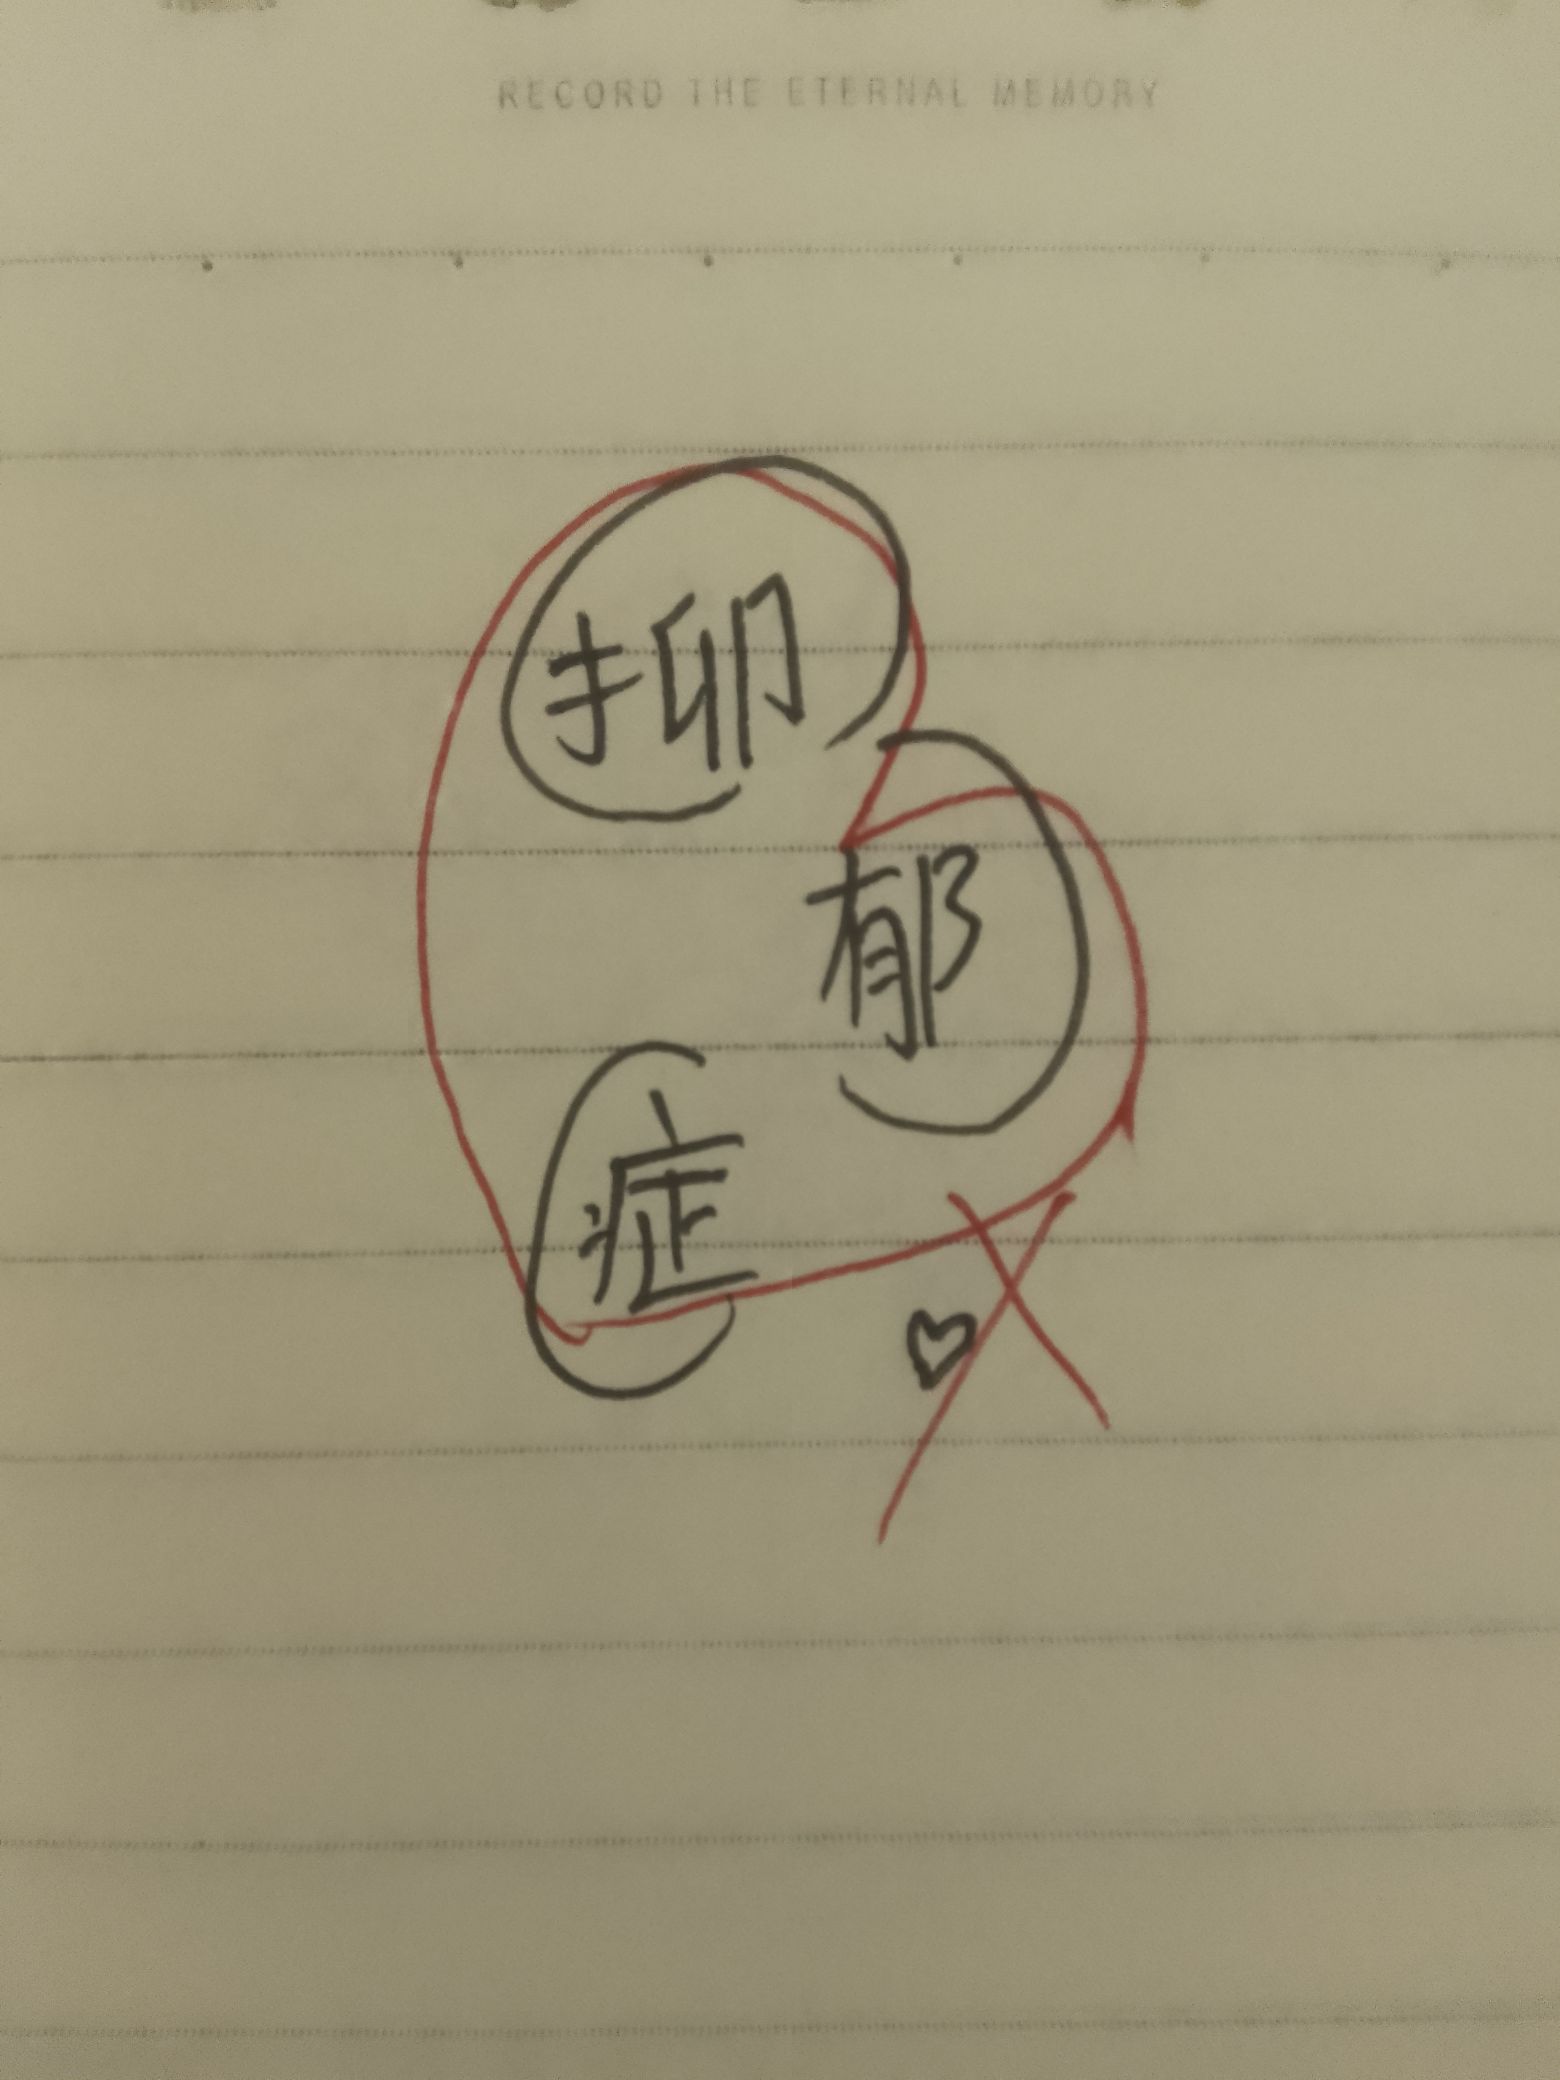 RECORD THE ETERNAL MEMORY
抑
郁
症